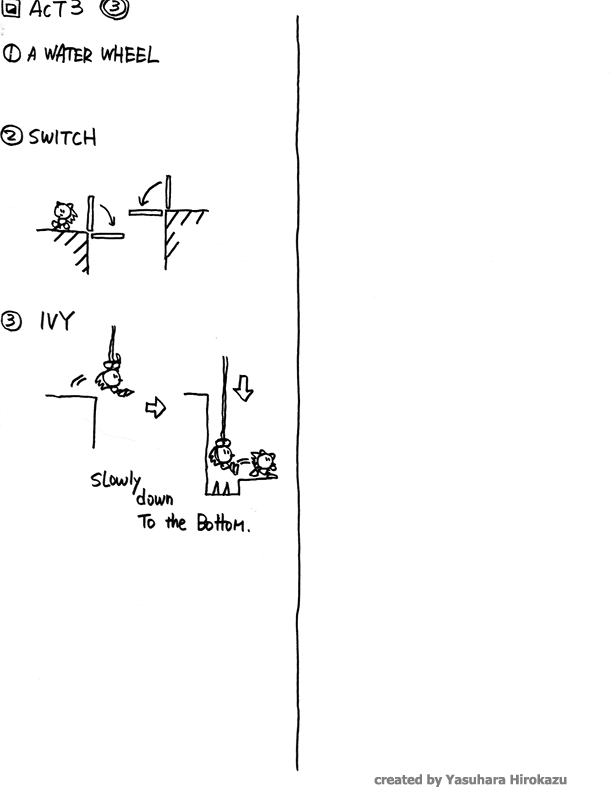 ACT 3 ③
① A WATER WHEEL
② SWITCH
③ IVY
Slowly
down
To the Bottom.
created by Yasuhara Hirokazu